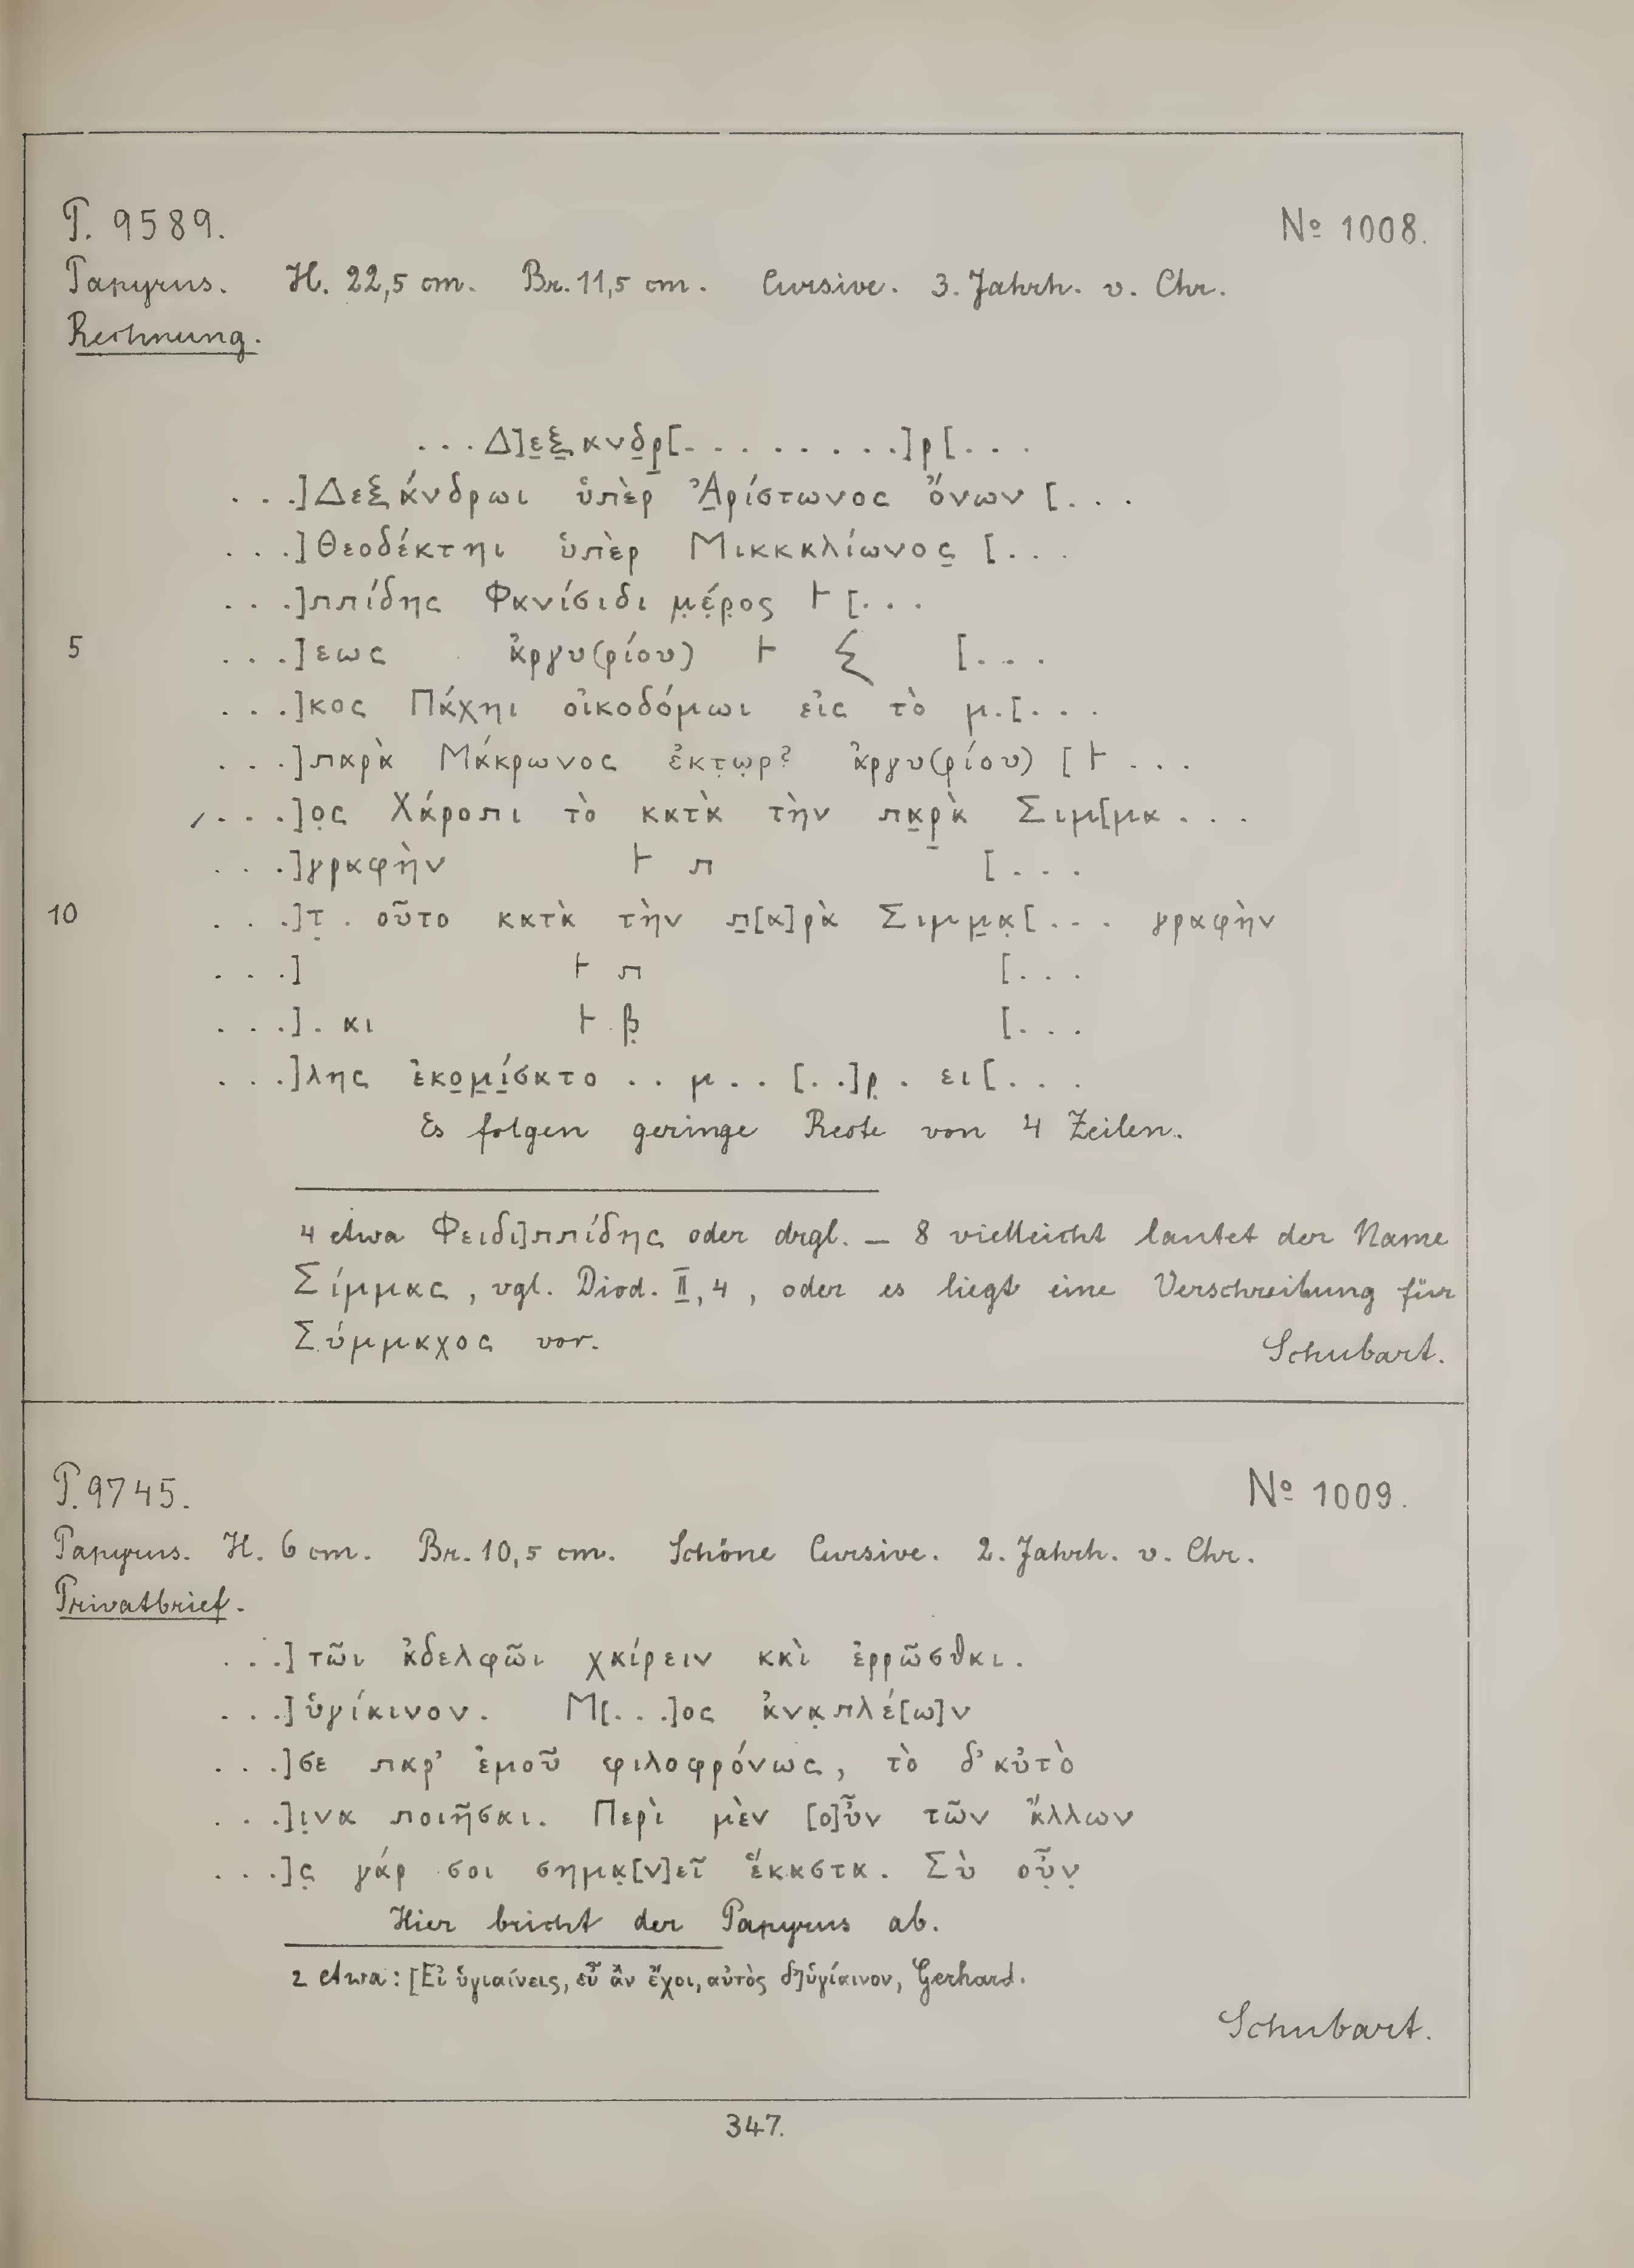 P. 9589. № 1008.
Papyrus. H. 22,5 cm. Br. 11,5 cm. Cursive. 3. Jahrh. v. Chr.
Rechnung.
. . . Δ]ε̣ξ̣ανδ̣ρ̣[. . . . . . . . .]ρ[. . .
. . .]Δεξάνδρωι ὑπὲρ Ἀ̣ρίστωνος ὄνων [. . .
. . .]Θεοδέκτηι ὑπὲρ Μικκαλίωνος̣ [. . .
. . .]ππίδης Φανίσιδι μ̣έ̣ρ̣ος ⊢ [. . .
5 . . .]εως ἀργυ(ρίου) ⊢ ξ [. . .
. . .]κος Πάχηι οἰκοδόμωι εἰς τὸ μ.[. . .
. . .]παρὰ Μάκρωνος ἐκτ̣ω̣ρ? ἀργυ(ρίου) [⊢ . . .
. . .]ο̣ς Χάροπι τὸ κατὰ τὴν πα̣ρ̣ὰ Σιμ[μα . . .
. . .]γραφὴν ⊢ π [. . .
10 . . .]τ̣ . οῦτο κατὰ τὴν π̣[α]ρὰ Σιμμ̣α̣[. . . γραφὴν
. . .] ⊢ π [. . .
. . .] . κι ⊢ β̣ [. . .
. . .]λης ἐκο̣μ̣ί̣σατο . . μ . . [. .]ρ̣ . ει[. . .
Es folgen geringe Reste von 4 Zeilen.
4 etwa Φειδι]ππίδης oder drgl. — 8 vielleicht lautet der Name
Σίμμας, vgl. Diod. II, 4, oder es liegt eine Verschreibung für
Σύμμαχος vor. Schubart.
P. 9745. № 1009.
Papyrus. H. 6 cm. Br. 10,5 cm. Schöne Cursive. 2. Jahrh. v. Chr.
Privatbrief.
. . .] τῶι ἀδελφῶι χαίρειν καὶ ἐρρῶσθαι.
. . .] ὑγίαινον. Μ[. . .]ος ἀνα̣πλέ[ω]ν
. . .]σε παρ' ἐμοῦ φιλοφρόνως, τὸ δ' αὐτὸ
. . .]ι̣να ποιῆσαι. Περὶ μὲν [ο]ὖν τῶν ἄλλων
. . .]ς̣ γάρ σοι σημα̣[ν]εῖ ἕκαστα. Σὺ οὖ̣ν̣
Hier bricht der Papyrus ab.
2 etwa: [Εἰ ὑγιαίνεις, εὖ ἂν ἔχοι, αὐτὸς δ]ὑγίαινον, Gerhard.
Schubart.
347.